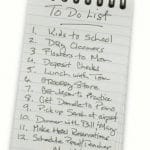 To Do List
1. Kids to School
2. Dry Cleaners
3. Flowers to Mom
4. Deposit Checks
5. Lunch with Tom
6. Grocery Store
7. Ben-Mom's Practice
8. Get Danielle to Piano
9. Pick up Sarah at airport
10. Dinner with Bill/Mary
11. Make Hotel Reservations
12. Schedule